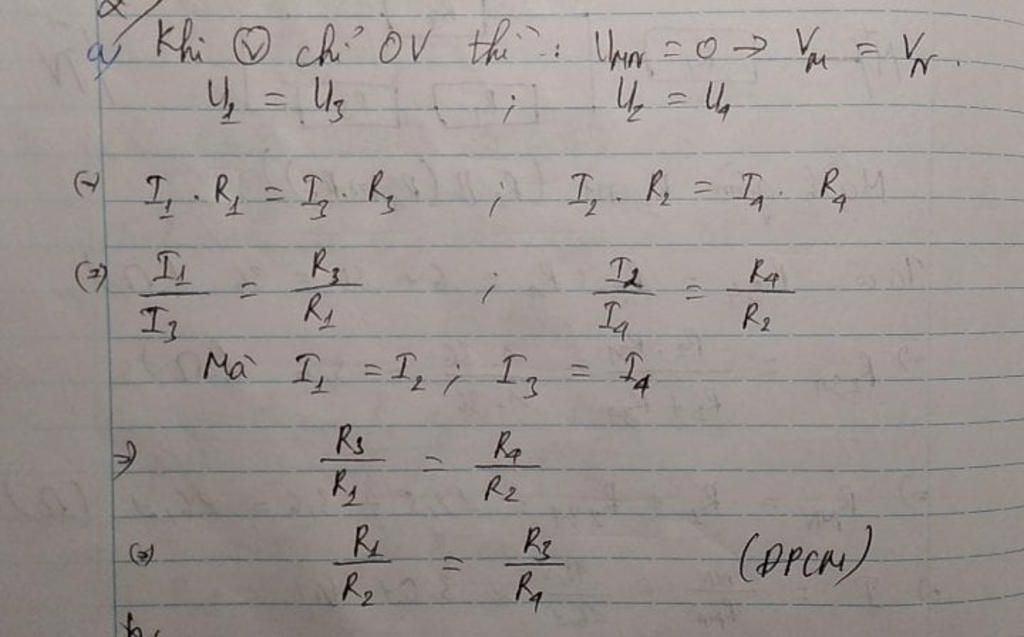 2/
a/ Khi Ⓥ chỉ 0V thì : U_MN = 0 → V_M = V_N.
U_1 = U_3 ; U_2 = U_4
(=) I_1 . R_1 = I_3 . R_3 ; I_2 . R_2 = I_4 . R_4
(=) I_1/I_3 = R_3/R_1 ; I_2/I_4 = R_4/R_2
Mà I_1 = I_2 ; I_3 = I_4
=> R_3/R_1 = R_4/R_2
(=) R_1/R_2 = R_3/R_4 (ĐPCM)
b,